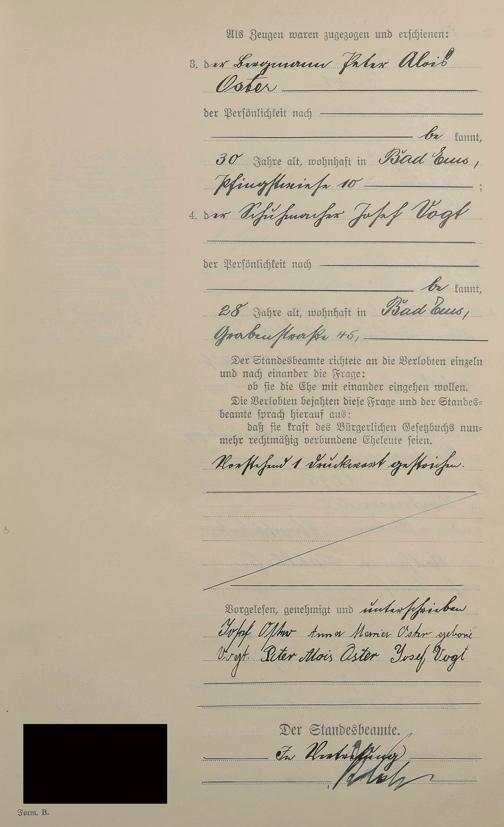 Als Zeugen waren zugezogen und erschienen:
3. der Bergmann Peter Alois
Oster
der Persönlichkeit nach
be kannt,
30 Jahre alt, wohnhaft in Bad Ems,
Pfingstwiese 10 ;
4. der Schuhmacher Josef Vogt
der Persönlichkeit nach
be kannt,
28 Jahre alt, wohnhaft in Bad Ems,
Grabenstraße 45,
Der Standesbeamte richtete an die Verlobten einzeln
und nach einander die Frage:
ob sie die Ehe mit einander eingehen wollen.
Die Verlobten bejahten diese Frage und der Standes-
beamte sprach hierauf aus:
daß sie kraft des Bürgerlichen Gesetzbuchs nun-
mehr rechtmäßig verbundene Eheleute seien.
Vorstehend 1 Druckwort gestrichen.
Vorgelesen, genehmigt und unterschrieben
Josef Oster Anna Maria Oster geborene
Vogt. Peter Alois Oster Josef Vogt
Der Standesbeamte.
In Vertretung
Form. B.